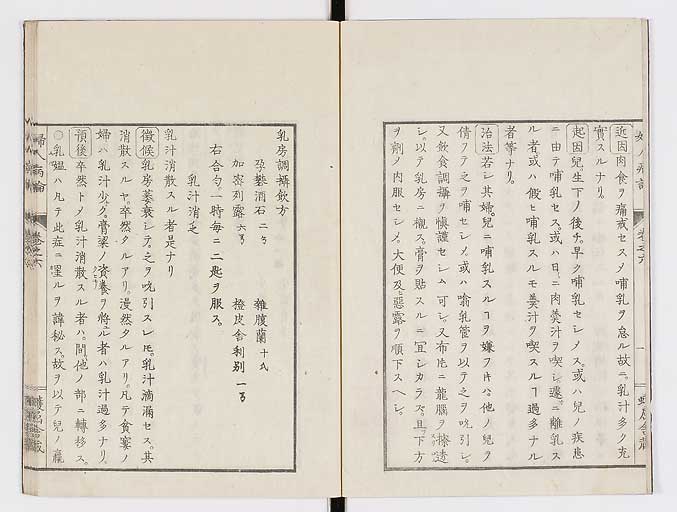 近因肉食ヲ痛戒セスメ哺乳ヲ怠ル故ニ乳汁多ク充
實スルナリ。
起因兒生下ノ後チ。早ク哺乳セシメス。或ハ兒ノ疾患
ニ由テ哺乳セス。或ハ日ニ肉羮汁ヲ喫シ。遽ニ離乳ス
ル者或ハ假ヒ哺乳スルモ羮汁ヲ喫スルヿ過多ナル
者等ナリ。
治法若シ其婦。兒ニ哺乳スルヿヲ嫌フキハ。他ノ兒ヲ
倩フテ之ヲ哺セシメ。或ハ喻乳管ヲ以テ之ヲ吮引シ。
又飲食調攝ヲ愼護セシム可シ。又布片ニ龍腦ヲ擦透
シ。以テ乳房ニ襯ス。膏ヲ貼スルニ冝シカラス。且下方
ヲ劑ノ内服セシメ。大便及ヒ惡露ヲ順下スヘシ。
乳房調攝飲方
孕鼈酒石 二々 雜腹蘭 十氏
加密列露 六弓 橙皮舎利別 一弓
右合勻。一時每ニ二匙ヲ服ス。
乳汁消乏
乳汁消散スル者是ナリ
徴候乳房萎衰シテ。之ヲ吮引スレ𪜈。乳汁滴漏セス。其
消散スルヤ。卒然タルアリ。漫然タルアリ。凡テ貧窶ノ
婦ハ乳汁少ク。膏粱ノ資養ヲ將ル者ハ乳汁過多ナリ。
預後卒然トメ乳汁消散スル者ハ。間他ノ部ニ轉移ス。
○乳媼ハ凡テ此症ニ罹ルヲ諱秘ス。故ヲ以テ兒ノ羸